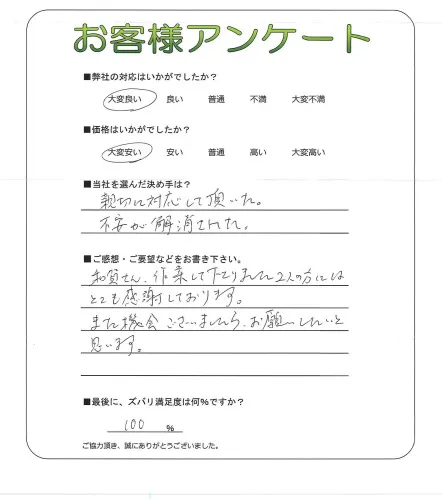 お客様アンケート
■弊社の対応はいかがでしたか？
大変良い 良い 普通 不満 大変不満
■価格はいかがでしたか？
大変安い 安い 普通 高い 大変高い
■当社を選んだ決め手は？
親切に対応して頂いた。
不安が解消された。
■ご感想・ご要望などをお書き下さい。
和賀さん、作業して下さりました2人の方には
とても感謝しております。
また機会ございましたら、お願いしたいと
思います。
■最後に、ズバリ満足度は何%ですか？
100 %
ご協力頂き、誠にありがとうございました。